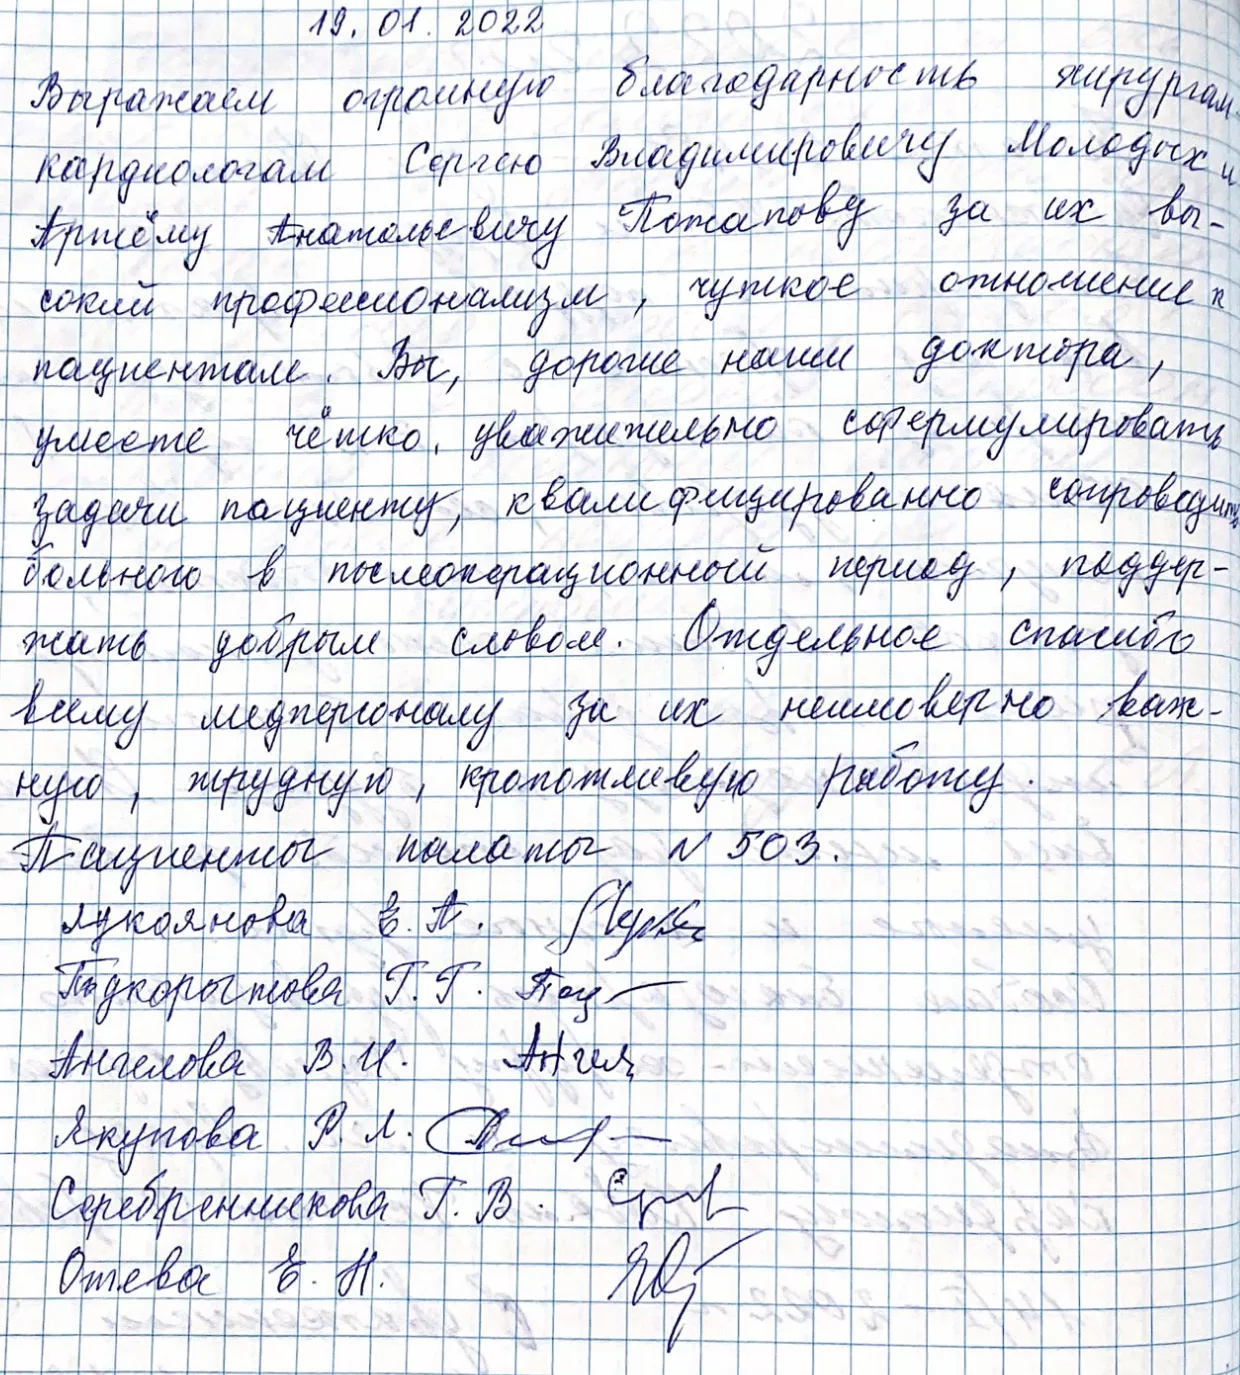 19.01.2022
Выражаем огромную благодарность хирургам-
кардиологам Сергею Владимировичу Молодых и
Артёму Анатольевичу Потапову за их вы-
сокий профессионализм, чуткое отношение к
пациентам. Вы, дорогие наши доктора,
умеете чётко, уважительно сформулировать
задачи пациенту, квалифицированно сопроводить
больного в послеоперационный период, поддер-
жать добрым словом. Отдельное спасибо
всему медперсоналу за их неимоверно важ-
ную, трудную, кропотливую работу.
Пациенты палаты N 503.
Лукоянова Е.А.
Подкорытова Г.Г. Под
Ангелова В.И. Ангел
Якупова Р.Л.
Серебренникова Г.В.
Отева Е.Н.